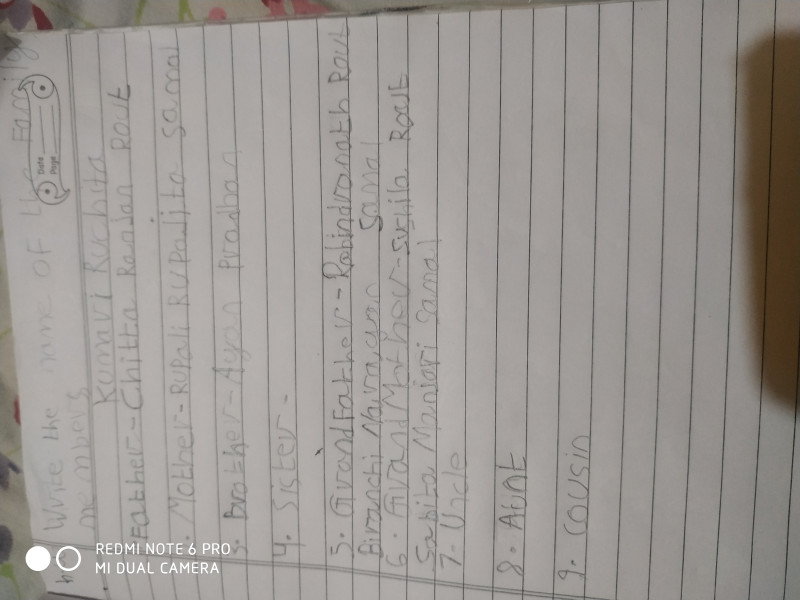 Write the name of the Family
members
Kumvi Ruchita
Father-Chitta Ranjan Rout
Mother-RUPali RUPalita samal
3. Brother-Ayan Pradhan
4. Sister-
5. GrandFather-Rabindranath Rout
Biranchi Narayan Samal
6. GrandMother-Sushila Rout
Sabita Manjari Samal
7. Uncle
8. AUnt
9. COUSin
Date
Page
REDMI NOTE 6 PRO
MI DUAL CAMERA